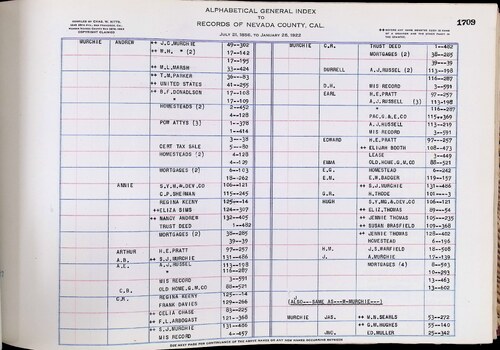 COMPILED BY CHAS. W. KITTS,
COPYRIGHT CLAIMED
ALPHABETICAL GENERAL INDEX
TO
RECORDS OF NEVADA COUNTY, CAL.
JULY 21, 1856, TO JANUARY 28, 1922
1709
MURCHIE ANDREW ++ J.C.MURCHIE 49--302
++ W.H. " (2) 17--142
17--195
++ W.L.MARSH 33--424
++ T.M.PARKER 36---83
++ UNITED STATES 41--255
++ B.F.DONALDSON 17--108
" 17--109
HOMESTEADS (2) 2--452
4--128
POW ATTYS (3) 1--378
1--414
3---35
CERT TAX SALE 5---80
HOMESTEADS (2) 4--128
4--129
MORTGAGES (2) 6--103
18--262
ANNIE S.Y.M.& DEV.CO 106--121
G.P.SHERMAN 115--245
REGINA KEENY 125---14
++ELIZA SIMS 124--307
++ NANCY ANDREW 132--405
TRUST DEED 1--482
MORTGAGES (2) 38--285
39---39
ARTHUR H.E.PRATT 97--257
A.B. ++ S.J.MURCHIE 131--486
A.E. A.J.RUSSEL 113--198
" 116--287
MIS RECORD 3--591
C.B. OLD HOME.G.M.CO 88--521
C.M. REGINA KEENY 125---14
FRANK DAVIES 129--266
++ CELIA CHASE 83--225
++ F.L.ARBOGAST 121--368
++ S.J.MURCHIE 131--486
MIS RECORD 4--457
MURCHIE C.M. TRUST DEED 1--482
MORTGAGES (2) 38--285
39---39
DURRELL A.J.RUSSELL (2) 113--198
116--287
D.H. MIS RECORD 3--591
EARL H.E.PRATT 97--257
A.J.RUSSELL (3) 113-198
" 116--287
PAC.G.& E.CO 115+369
A.J.RUSSELL 113--219
MIS RECORD 3--591
EDWARD H.E.PRATT 97--257
++ ELIJAH BOOTH 108--473
LEASE 3--449
EMMA OLD.HOME.G.M.CO 88--521
E.G. HOMESTEAD 6--242
E.M. E.W.BADGER 119--157
++ S.J.MURCHIE 131--486
G.R. H.THODE 101----3
HUGH S.Y.MG.& DEV.CO 106--121
++ ELIZ.THOMAS 89---54
++ JENNIE THOMAS 105--235
++ SUSAN BRASFIELD 109--368
++ JENNIE THOMAS 128--402
HOMESTEAD 6--196
H.M. J.S.WARFIELD 18--508
J. A.MURCHIE 17--139
MORTGAGES (4) 8--501
10--293
13--463
13--602
(ALSO---SAME AS---M-MURCHIE---)
MURCHIE JAS. ++ W.N.SEARLS 53--272
++ G.M.HUGHES 55--140
JNO. ED.MULLER 25--342
SEE NEXT PAGE FOR CONTINUANCE OF THE ABOVE NAMES OR ANY NEW NAMES REQUIRING REVISION